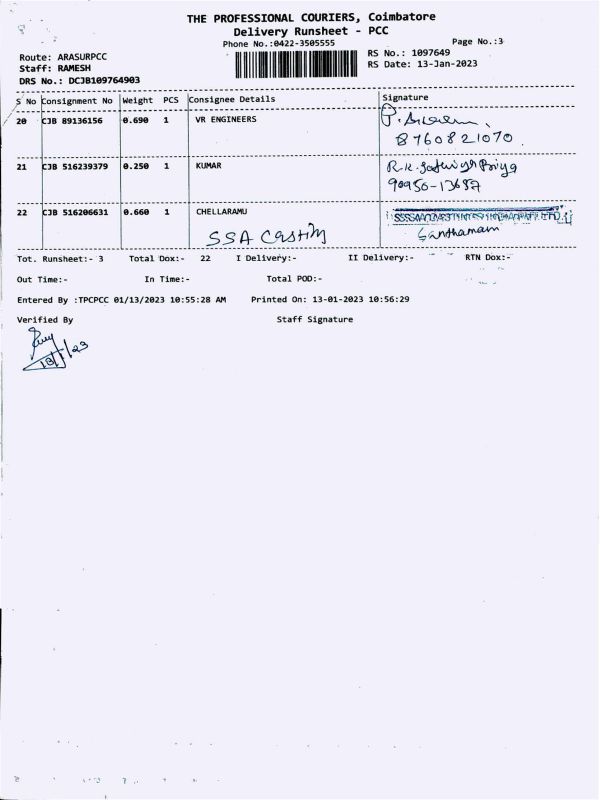 THE PROFESSIONAL COURIERS, Coimbatore
Delivery Runsheet - PCC
Phone No.:0422-3505555
Page No.:3
Route: ARASURPCC
RS No.: 1097649
Staff: RAMESH
RS Date: 13-Jan-2023
DRS No.: DCJB109764903
S No Consignment No Weight PCS Consignee Details Signature
20 CJB 89136156 0.690 1 VR ENGINEERS
8760821070
21 CJB 516239379 0.250 1 KUMAR
90950-13687
22 CJB 516206631 0.660 1 CHELLARAMU
SSA Casting
Tot. Runsheet:- 3 Total Dox:- 22 I Delivery:- II Delivery:- RTN Dox:-
Out Time:- In Time:- Total POD:-
Entered By :TPCPCC 01/13/2023 10:55:28 AM Printed On: 13-01-2023 10:56:29
Verified By Staff Signature